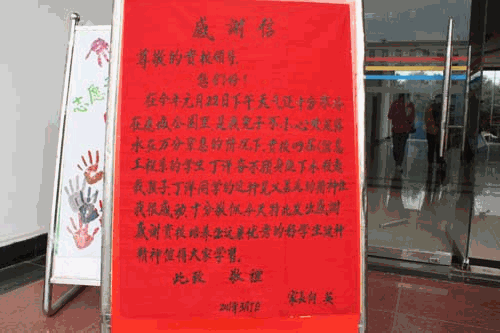 感谢信
尊敬的贵校领导:
您们好!
在今年元月22日下午天气还十分寒冷
在 公园里,是我儿子不小心 落
水在万分 急的情况下,贵校
工程系的学生丁洋奋不顾身跳下水救起
我孩子,丁洋同学的这种见义勇为的精神让
我很感动,十分敬佩,今天特此发出感谢
感谢贵校培养出这样优秀的好学生,这种
精神值得大家学习。
此致 敬礼
家长 何 英
志愿